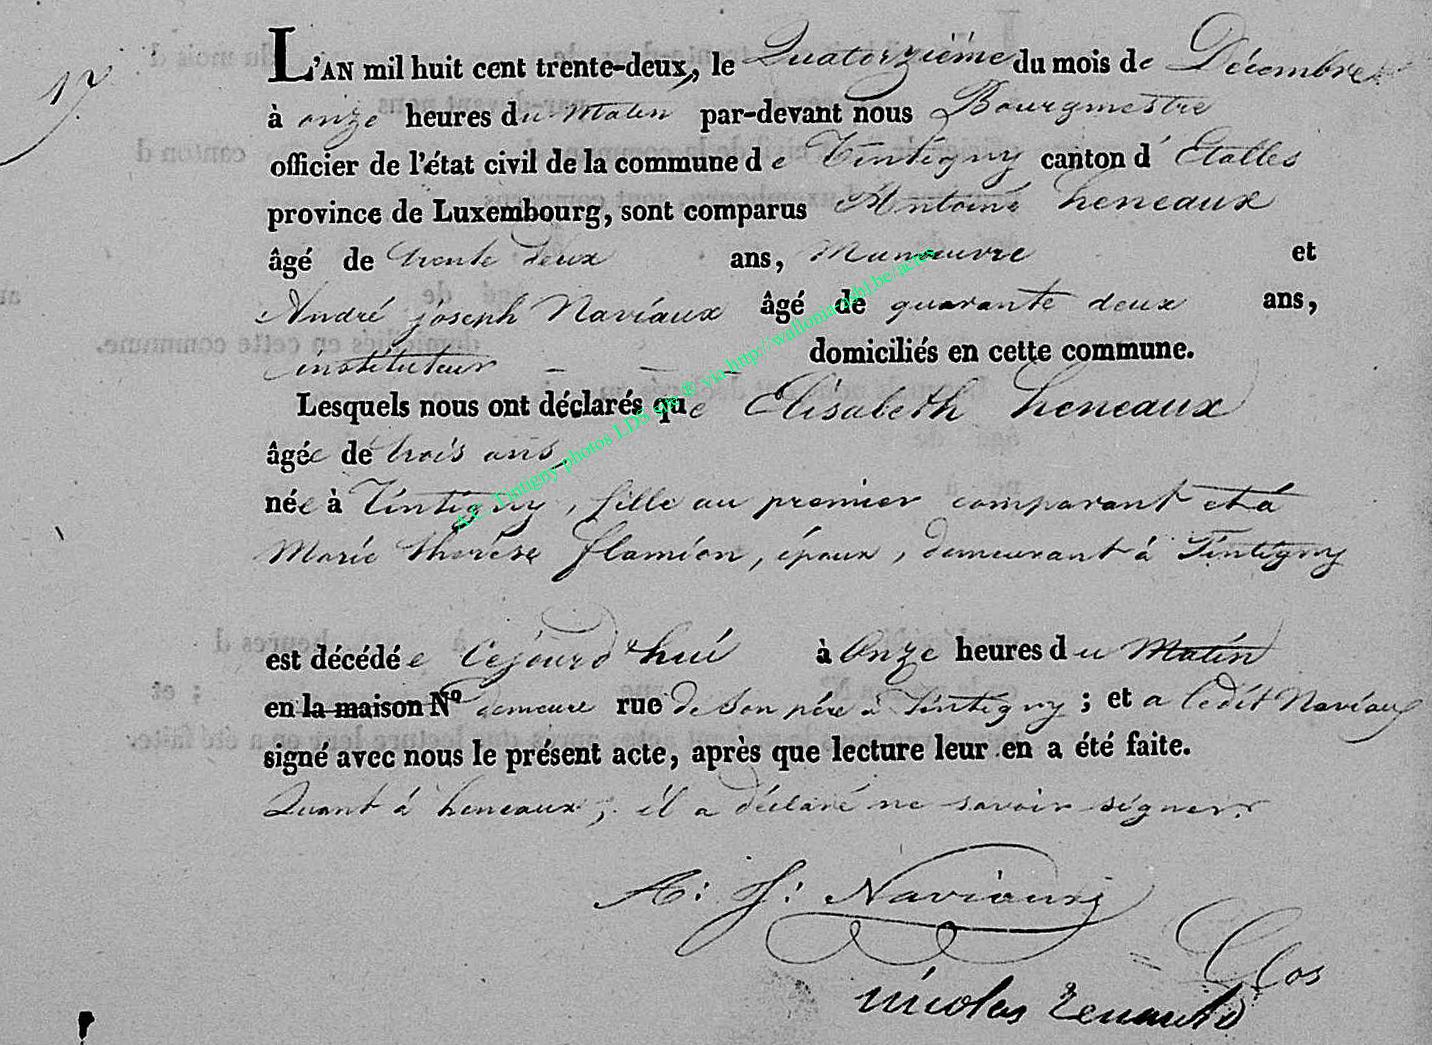 17.
L'AN mil huit cent trente-deux, le Quatorzième du mois de Décembre
à onze heures du Matin par-devant nous Bourgmestre
officier de l'état civil de la commune de Tintigny canton d' Etalles
province de Luxembourg, sont comparus Antoine heneaux
âgé de trente deux ans, Manœuvre et
André joseph Naviaux âgé de quarante deux ans,
instituteur — — — domiciliés en cette commune.
Lesquels nous ont déclarés que Elisabeth heneaux
âgée de trois ans,
née à Tintigny, fille au premier comparant et à
Marie thérèse flamion, époux, demeurant à Tintigny
est décédée Cejourd'hui à Onze heures du Matin
en la maison Nº demeure rue de son père à Tintigny ; et a ledit Naviaux
signé avec nous le présent acte, après que lecture leur en a été faite.
Quant à heneaux, il a déclaré ne savoir signer.
A: J: Naviaux
nicolas
A.E. Tintigny photos LDS via http://wallonia-asbl.be/actes